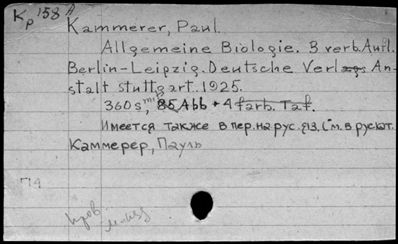 Kp 158 A
Kammerer, Paul.
Allgemeine Biologie. 3 verb. Aufl.
Berlin-Leipzig. Deutsche Verlags An-
stalt Stuttgart. 1925.
360 s, m 85 Abb + 4 farb. Taf.
Имеется также в пер. на рус. яз. См. в рус кат.
Каммерер, Пауль